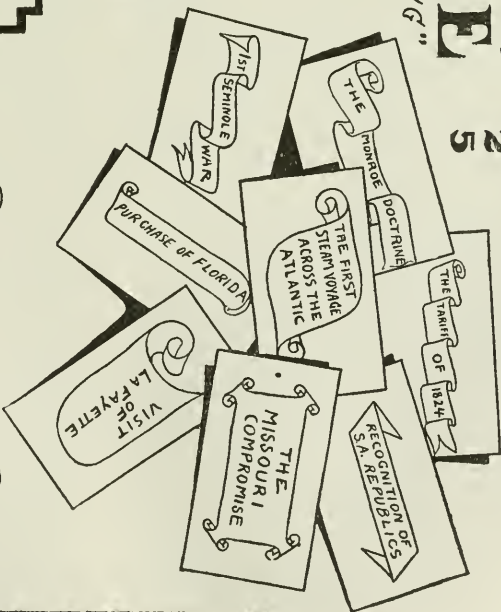 E
"G"
25
1ST
SEMINOLE
WAR
THE
MONROE
DOCTRINE
PURCHASE OF FLORIDA
THE FIRST
STEAM VOYAGE
ACROSS THE
ATLANTIC
THE
TARIFF
OF
1824
VISIT
OF
LAFAYETTE
THE
MISSOURI
COMPROMISE
RECOGNITION OF
S.A. REPUBLICS